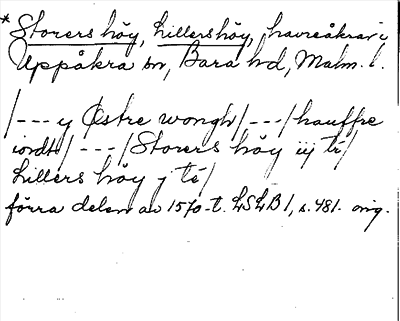 * Storers höy, Lillers höy, havreåkrar i
Uppåkra sn, Bara hd, Malm. l.
/--- y Østre wongh/---/hauffre
iordt/---/Storers höy iij té/
Lillers höy j té/
förra delen av 1570-t. LSLB1, s. 481. orig.